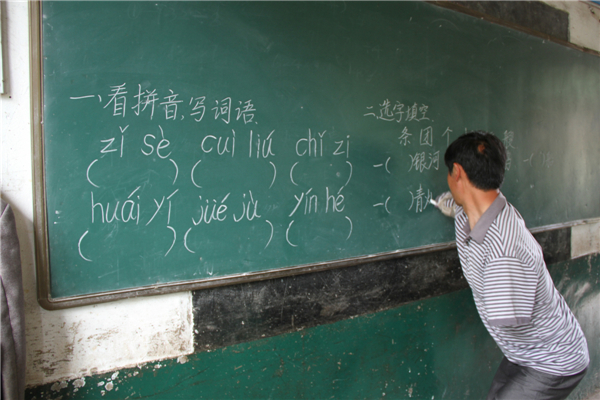 一、看拼音,写词语.
zǐ sè cuì liú chǐ zi
( ) ( ) ( )
huái yí jué jù yín hé
( ) ( ) ( )
二、选字填空
条 团 个
一( )银河
一( )清